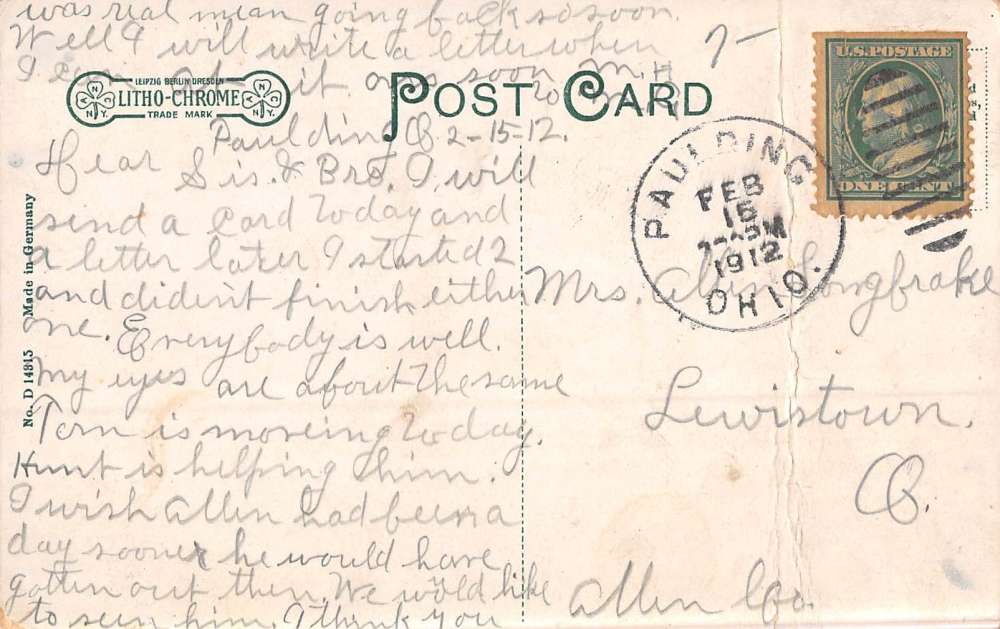 was real mean going back so soon.
Well I will write a letter when
I can it soon M. H
7-
U.S. POSTAGE
ONE CENT
LEIPZIG BERLIN DRESDEN
LITHO-CHROME
TRADE MARK
N.Y.
POST CARD
PAULDING
FEB
15
1912
OHIO.
Paulding O 2-15-12.
Dear Sis. & Bro. I will
send a card today and
a letter later I started 2
and diden't finish either
one. Everybody is well.
My eyes are about the same
Tom is moveing today.
Hunt is helping him.
I wish Allen had been a
day sooner he would have
gotten out then. We would like
to seen him. I think you
Mrs. Longbrake
Lewistown.
O.
Allen Co.
No. D 14915 Made in Germany